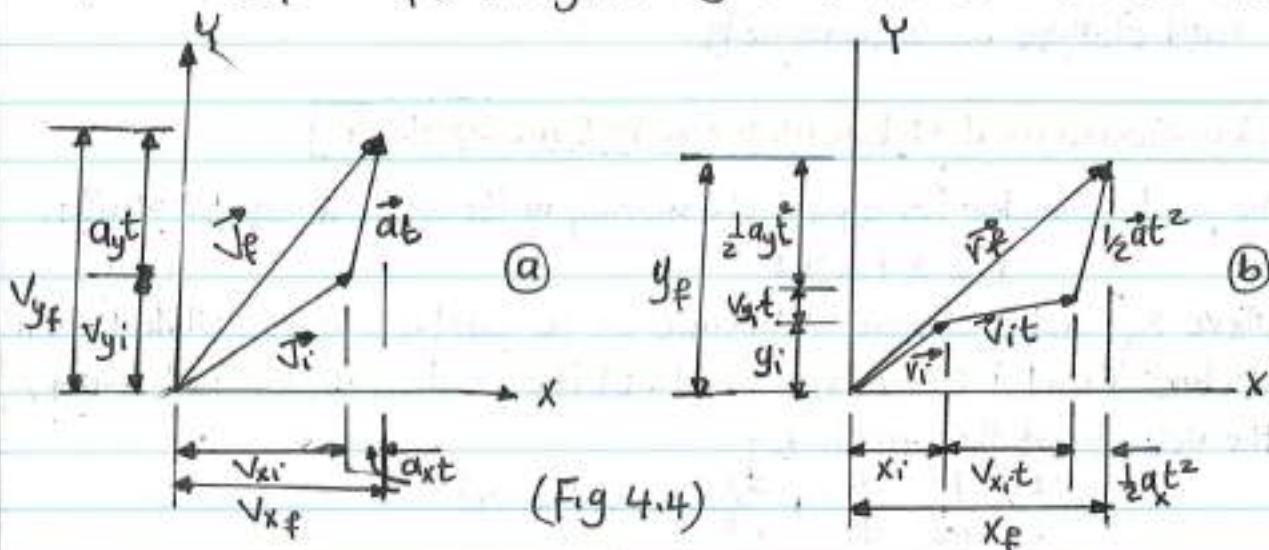 Y
a_y t
V_yf
V_yi
J⃗_f
a⃗t
J⃗_i
ⓐ
X
V_xi
a_x t
V_xf
(Fig 4.4)
Y
½a_y t²
V_yi t
y_f
y_i
r⃗_f
½a⃗t²
V⃗_i t
r⃗_i
ⓑ
X
x_i
V_xi t
½a_x t²
x_f